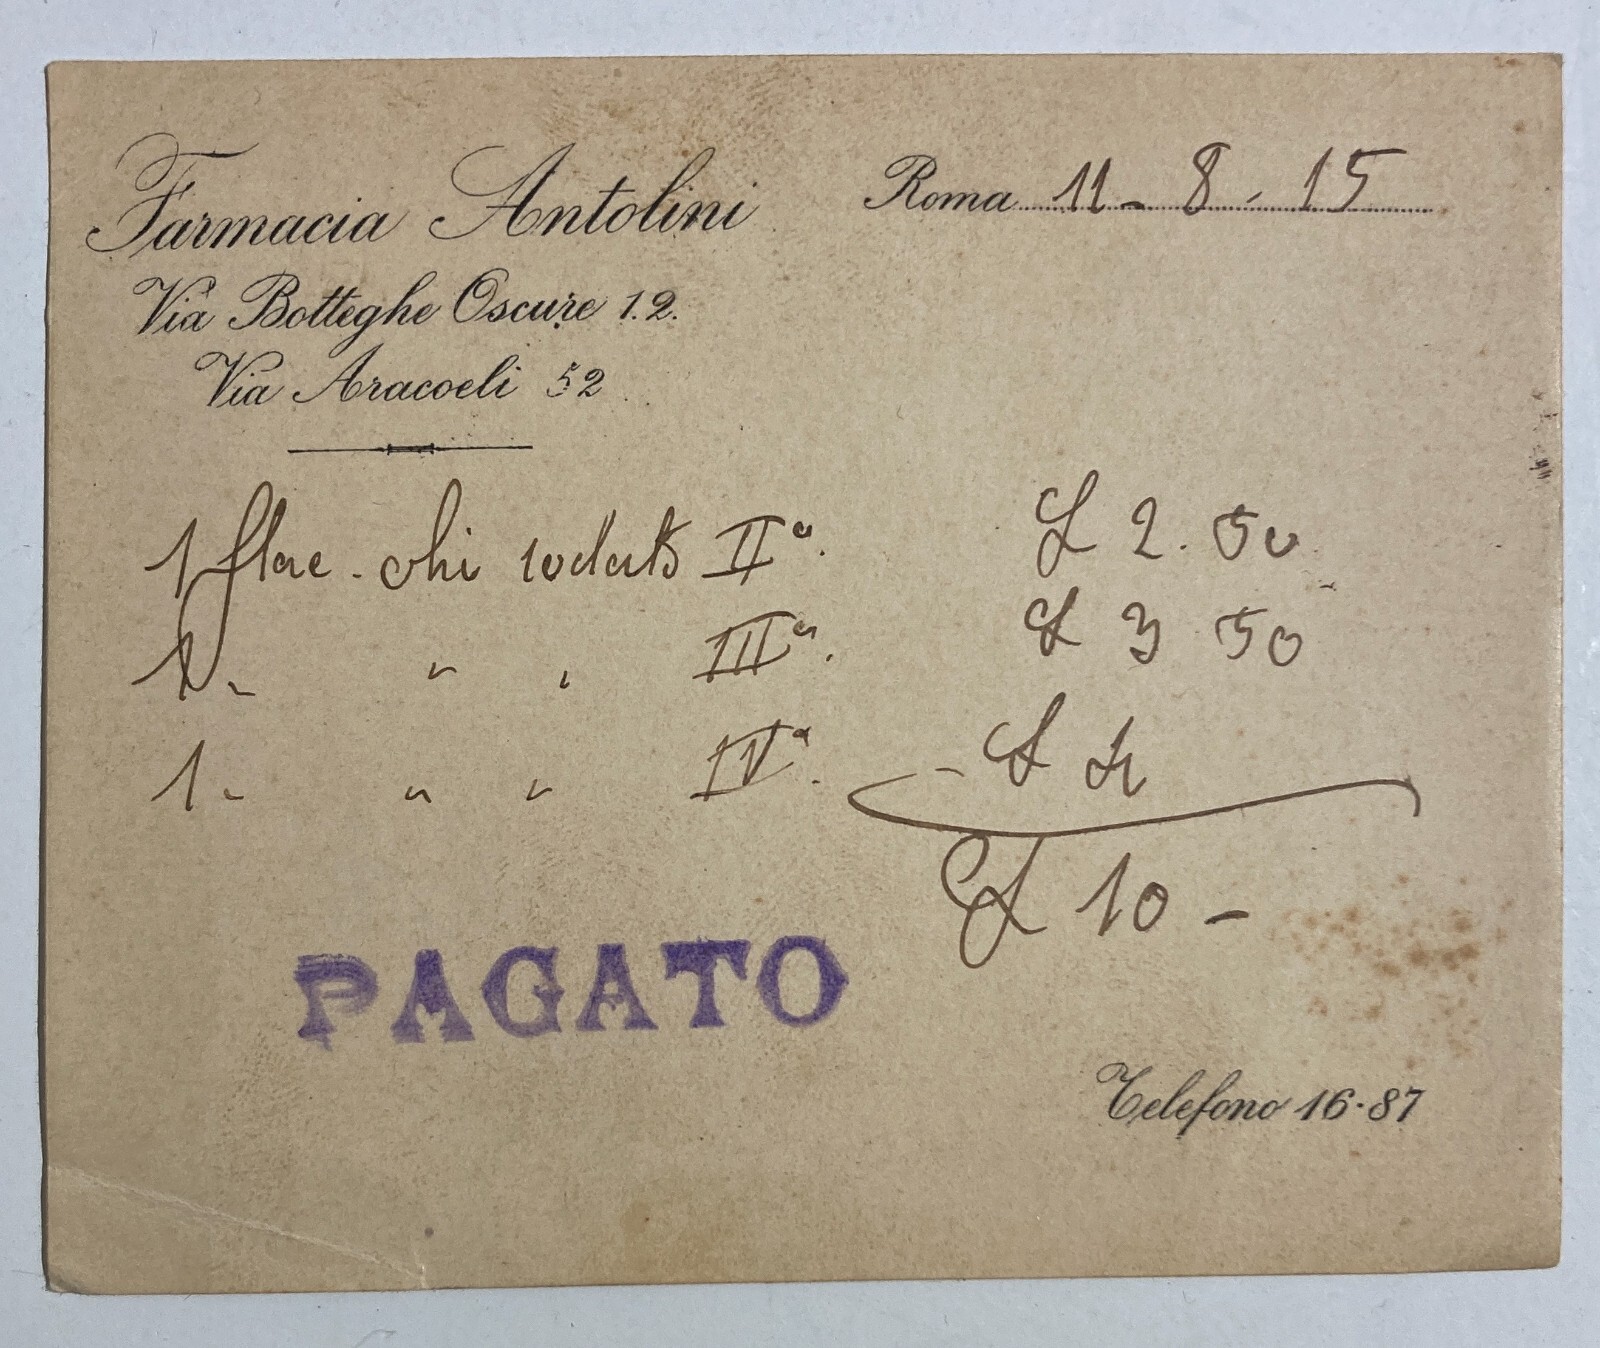 Farmacia Antolini
Via Botteghe Oscure 1.2.
Via Aracoeli 52
Roma 11 - 8 - 15
1 flac. chi iodato IIº. L 2.50
1 - " " IIIº. L 3 50
1 - " " IVº. - L 4
L 10 -
PAGATO
Telefono 16·87